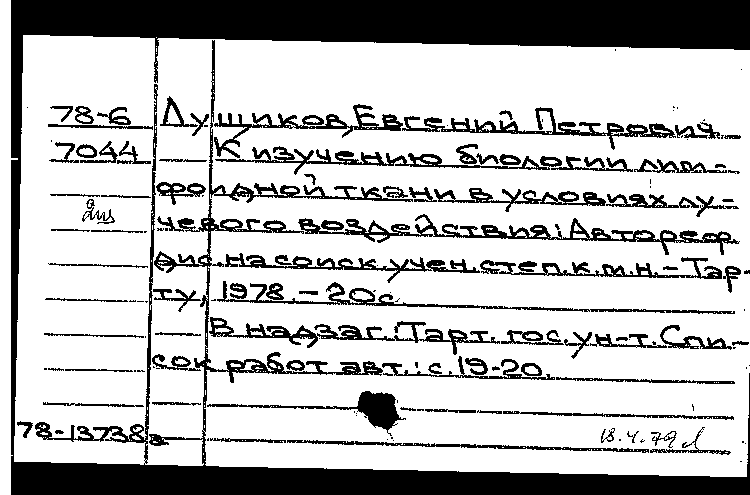 78-6 Лущиков, Евгений Петрович
7044 К изучению биологии лим-
фоидной ткани в условиях лу-
чевого воздействия: Автореф.
дис. на соиск. учен. степ. к.м.н. - Тар-
ту, 1978. - 20с.
В надзаг.: Тарт. гос. ун-т. Спи-
сок работ авт.: с. 19-20.
78-13738
18.4.79